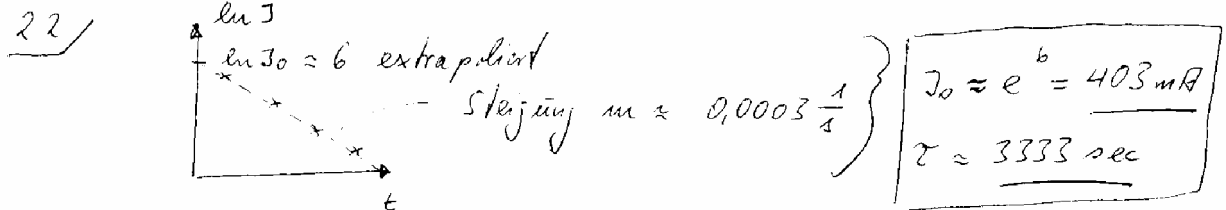 22/
ln J
ln J₀ ≈ 6 extrapoliert
Steigung m ≈ 0,0003 1/s
t
J₀ ≈ e⁶ = 403 mA
τ ≈ 3333 sec